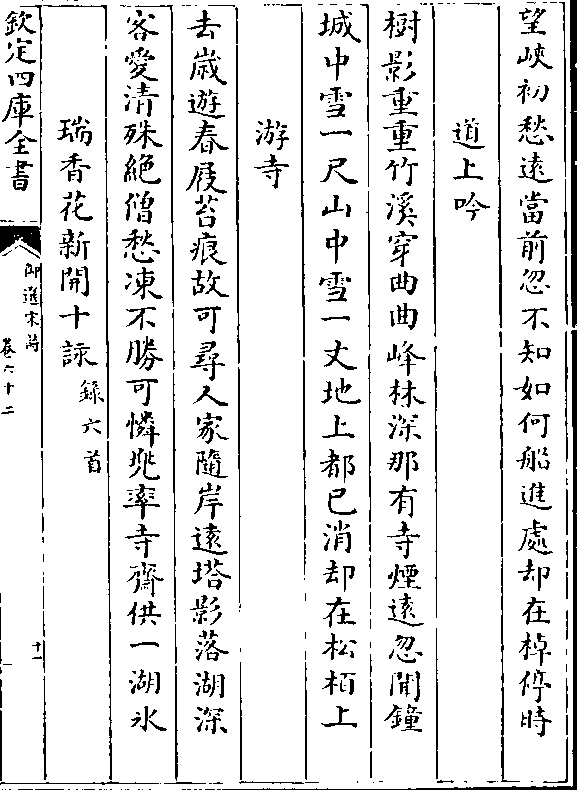 望峽初愁遠當前忽不知如何船進處却在棹停時
道上吟
樹影重重竹溪穿曲曲峰林深那有寺煙遠忽聞鐘
城中雪一尺山中雪一丈地上都已消却在松栢上
游寺
去歲遊春屐苔痕故可尋人家隨岸遠塔影落湖深
客愛清殊絶僧愁凍不勝可憐兜率寺齋供一湖氷
瑞香花新開十詠錄六首
欽定四庫全書
御選宋詩
卷六十二
十一